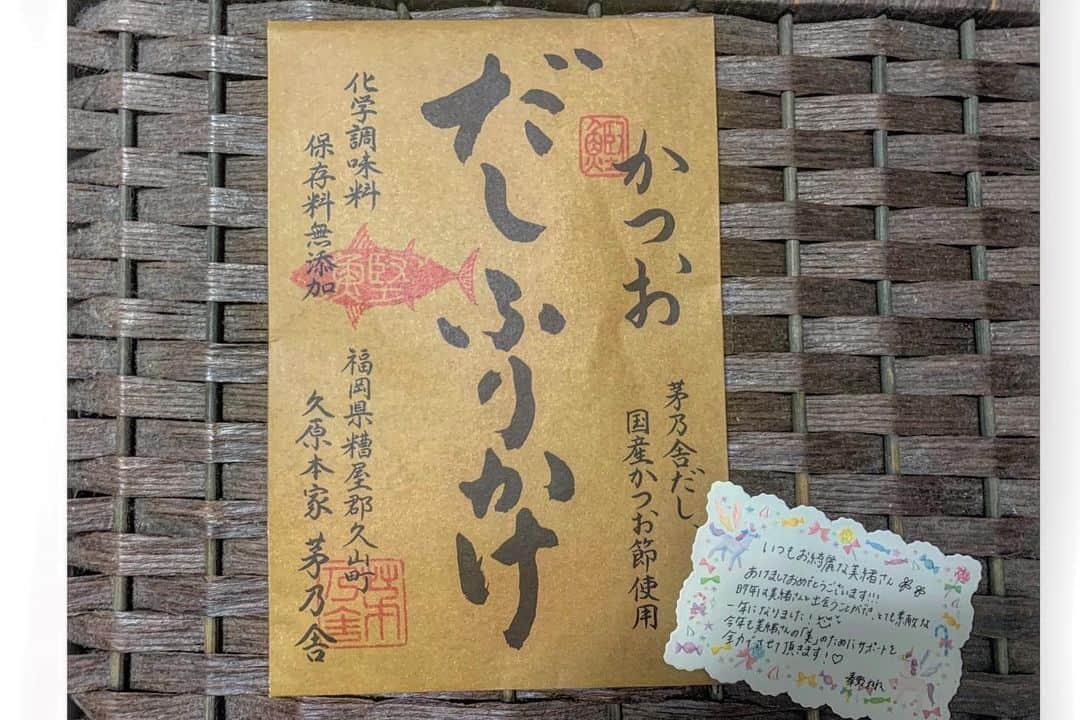 かつお
だしふりかけ
茅乃舎だし、
国産かつお節使用
化学調味料
保存料無添加
福岡県糟屋郡久山町
久原本家 茅乃舎
鰹
茅乃舎
いつもお綺麗な美緒さん
あけましておめでとうございます!!!
昨年は美緒さんと出会うことができ、とても素敵な
一年になりました!
今年も美緒さんの「美」のためにサポートを
全力でさせて頂きます!♡